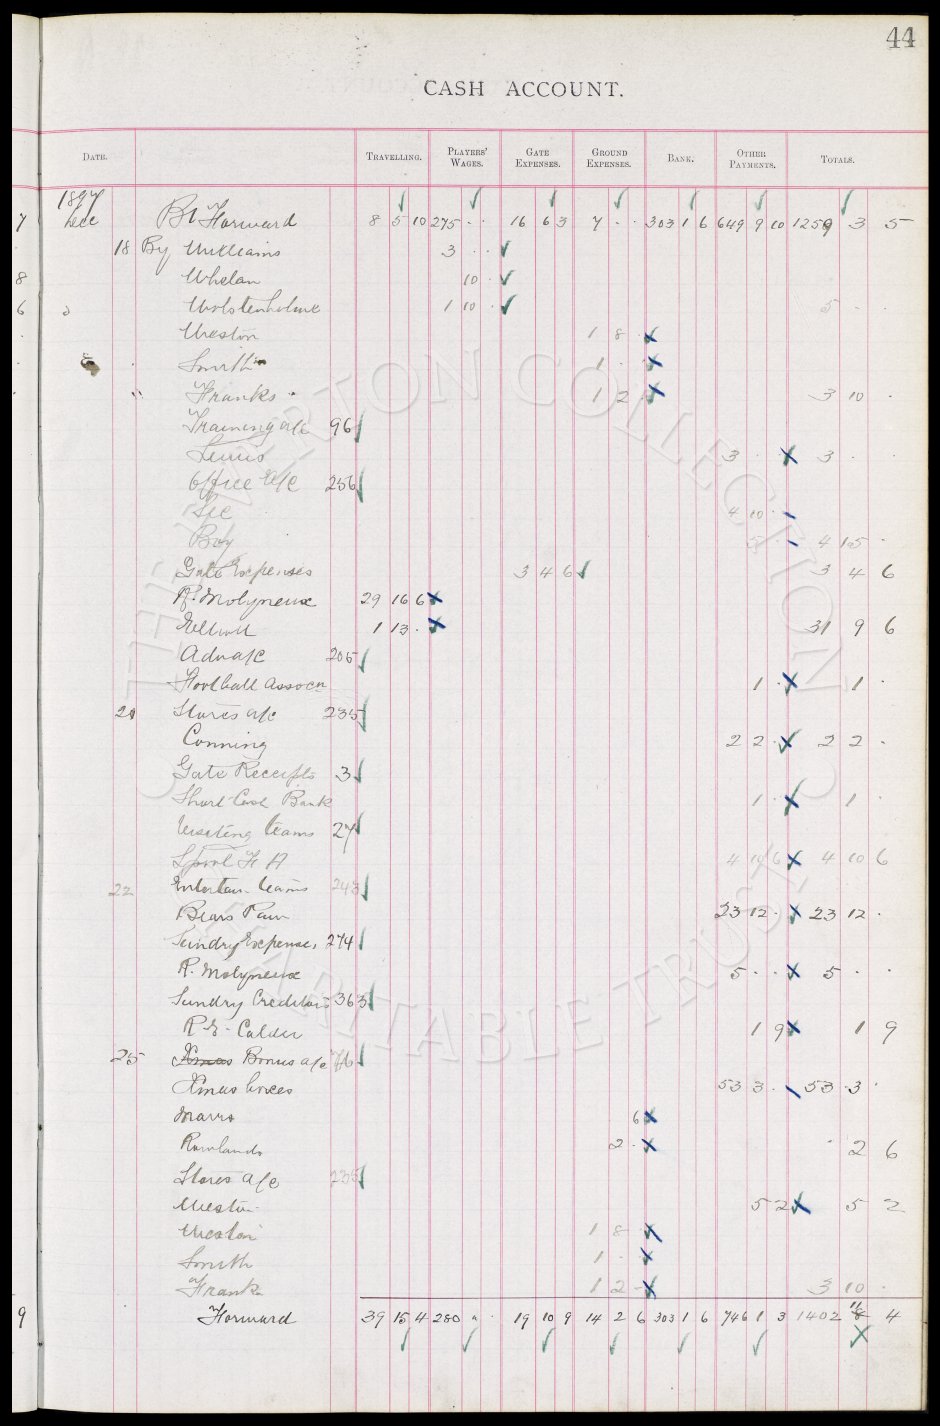 44
CASH ACCOUNT.
DATE. TRAVELLING. PLAYERS' WAGES. GATE EXPENSES. GROUND EXPENSES. BANK. OTHER PAYMENTS. TOTALS.
1897
7 Dec Bt Forward 8 5 10 275 - - 16 6 3 7 - - 303 1 6 649 9 10 1259 3 5
18 By Williams 3 - -
8 Whelan 10 -
6 Wolstenholme 1 10 - 5 - -
Weston 1 8 -
Smith 1 - -
Franks 1 2 - 3 10 -
Training a/c 96
Lewis 3 - - 3 - -
Office Ex/c 256
Sec 4 10 -
Boy 5 - 4 15 -
Gate Expenses 3 4 6 3 4 6
R. Molyneux 29 16 6
Elliott 1 13 - 31 9 6
Adv a/c 205
Football Assocn 1 - 1 -
20 Stores a/c 235
Conning 2 2 - 2 2 -
Gate Receipts 3
Short Cash Bank 1 - 1 -
Visiting teams 27
Lpool F A 4 10 6 4 10 6
22 Entertain teams 243
Bears Paw 23 12 - 23 12 -
Sundry Expenses 274
R. Molyneux 5 - - 5 - -
Sundry Creditors 363
R. E. Calder 1 9 1 9
25 Xmas Bonus a/c 76
Xmas boxes 53 3 - 53 3 -
Marrs 6
Rowlands 2 - - 2 6
Stores a/c 235
Weston 5 2 5 2
Weston 1 8 -
Smith 1 - -
Frank 1 2 - 3 10 -
9 Forward 39 15 4 280 - - 19 10 9 14 2 6 303 1 6 746 1 3 1402 11 4
THE EVERTON COLLECTION CHARITABLE TRUST